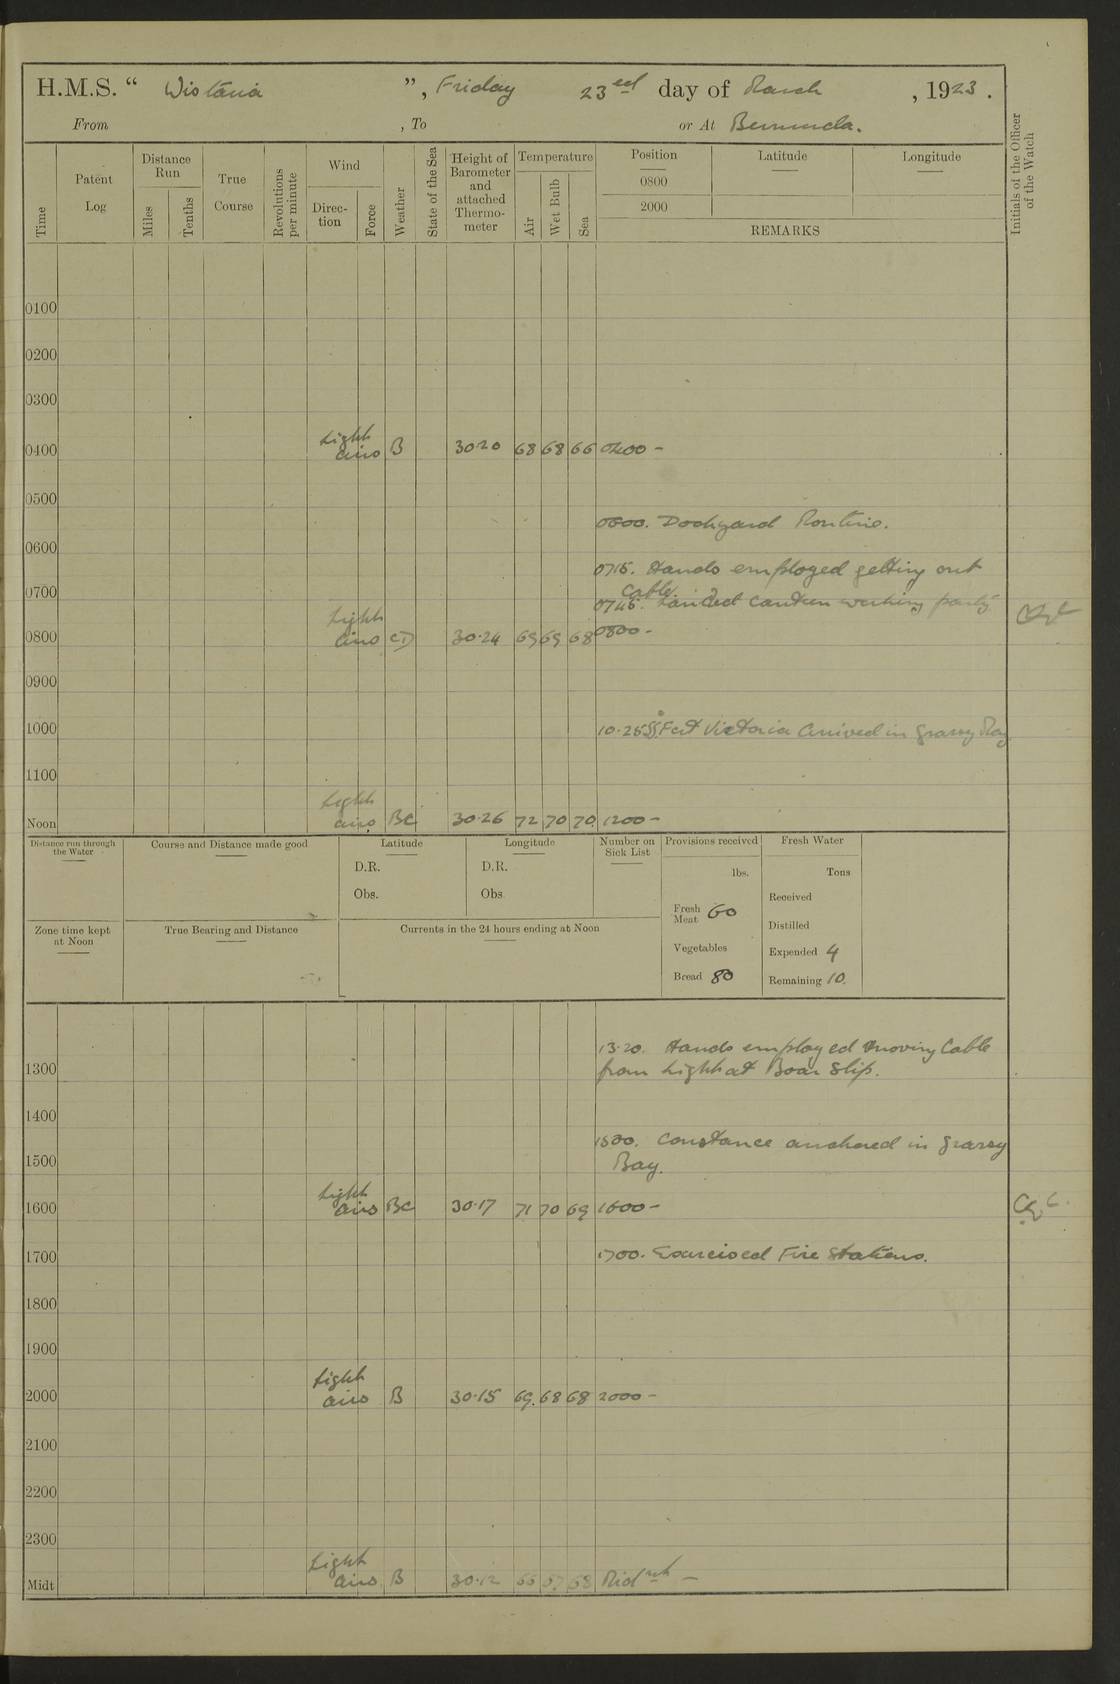 H.M.S. “ Wistaria ”, Friday 23rd day of March , 1923.
From , To or At Bermuda.
Time
Patent Log
Distance Run
Miles
Tenths
True Course
Revolutions per minute
Wind
Direction
Force
Weather
State of the Sea
Height of Barometer and attached Thermometer
Temperature
Air
Wet Bulb
Sea
Position
0800
2000
Latitude
Longitude
REMARKS
Initials of the Officer of the Watch
0100
0200
0300
0400 Light airs B 30·20 68 68 66 0400 -
0500
0600. Dockyard Routine.
0600
0715. Hands employed getting out
cable.
0700
0745. Landed canteen working party
0800 Light airs 30·24 69 69 68 0800 -
0900
1000
10·25 SS Fort Victoria arrived in Grassy Bay
1100
Noon Light airs BC 30·26 72 70 70 1200 -
Distance run through the Water
Course and Distance made good
Latitude
D.R.
Obs.
Longitude
D.R.
Obs
Number on Sick List
Provisions received
lbs.
Fresh Meat 60
Vegetables
Bread 80
Fresh Water
Tons
Received
Distilled
Expended 4
Remaining 10.
Zone time kept at Noon
True Bearing and Distance
Currents in the 24 hours ending at Noon
13·20. Hands employed moving Cable
from Light at Boar Slip.
1300
1400
1500. Constance anchored in Grassy
Bay.
1500
1600 Light airs BC 30·17 71 70 69 1600 -
1700 1700. Exercised Fire Stations.
1800
1900
2000 Light airs B 30·15 69. 68 68 2000 -
2100
2200
2300
Midt Light airs B 30·12 66 67 68 Midnt -